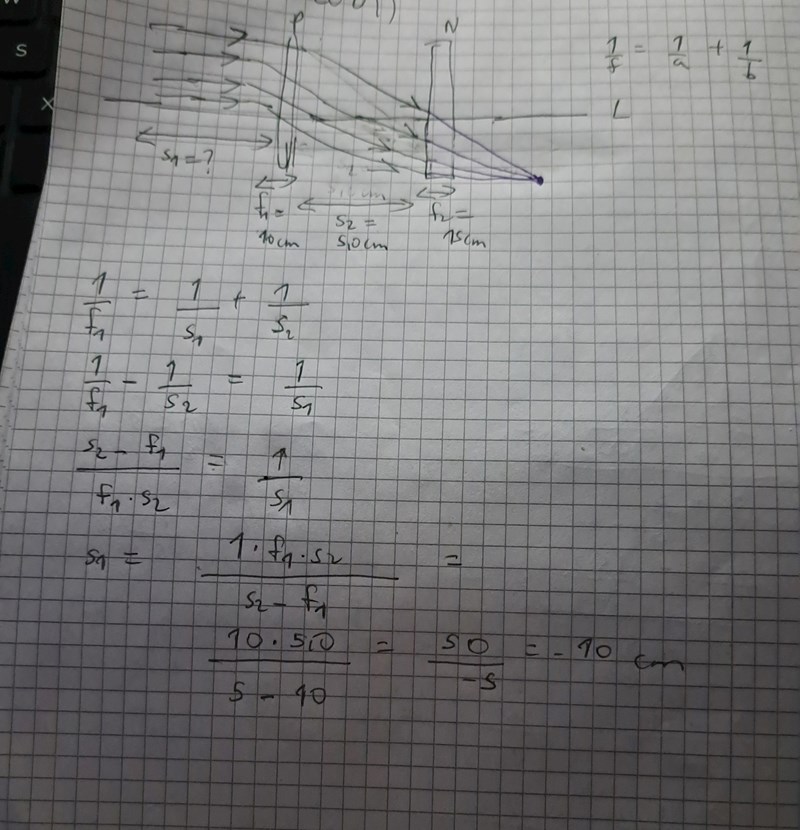 S
x
P
N
1/f = 1/a + 1/b
L
s1 = ?
f1 = 10cm
s2 = 5,0cm
f2 = 15cm
1/f1 = 1/s1 + 1/s2
1/f1 - 1/s2 = 1/s1
s2 - f1 / f1 · s2 = 1/s1
s1 = 1 · f1 · s2 / s2 - f1 =
10 · 5,0 / 5 - 10 = 50 / -5 = - 10 cm